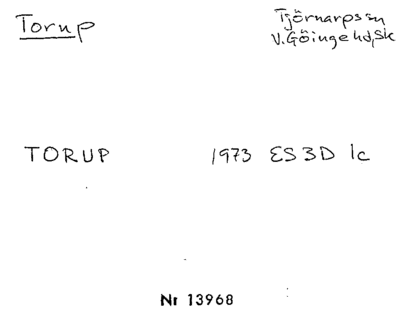 Torup
Tjörnarps sn
V. Göinge hd, Sk
TORUP 1973 ES3D 1c
Nr 13968